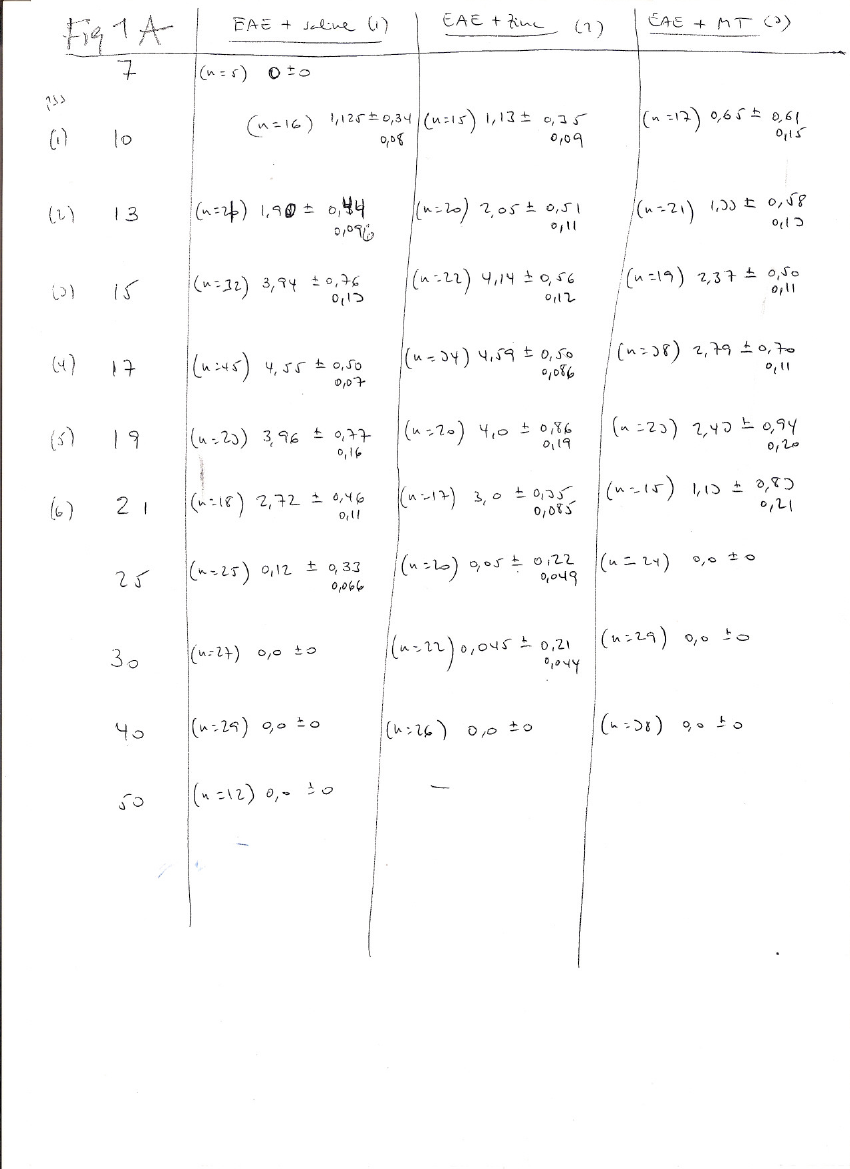 Fig 1A EAE + saline (1) EAE + Zinc (2) EAE + MT (3)
7 (n=5) 0 ± 0
(1) 10 (n=16) 1,125 ± 0,34 (n=15) 1,13 ± 0,35 (n=17) 0,65 ± 0,61
0,08 0,09 0,15
(2) 13 (n=21) 1,90 ± 0,44 (n=20) 2,05 ± 0,51 (n=21) 1,33 ± 0,58
0,096 0,11 0,13
(3) 15 (n=32) 3,94 ± 0,76 (n=22) 4,14 ± 0,56 (n=19) 2,37 ± 0,50
0,13 0,12 0,11
(4) 17 (n=45) 4,55 ± 0,50 (n=34) 4,59 ± 0,50 (n=38) 2,79 ± 0,70
0,07 0,086 0,11
(5) 19 (n=23) 3,96 ± 0,77 (n=20) 4,0 ± 0,86 (n=23) 2,43 ± 0,94
0,16 0,19 0,20
(6) 21 (n=18) 2,72 ± 0,46 (n=17) 3,0 ± 0,35 (n=15) 1,13 ± 0,83
0,11 0,085 0,21
25 (n=25) 0,12 ± 0,33 (n=20) 0,05 ± 0,22 (n=24) 0,0 ± 0
0,066 0,049
30 (n=27) 0,0 ± 0 (n=22) 0,045 ± 0,21 (n=29) 0,0 ± 0
0,044
40 (n=29) 0,0 ± 0 (n=26) 0,0 ± 0 (n=38) 0,0 ± 0
50 (n=12) 0,0 ± 0 —